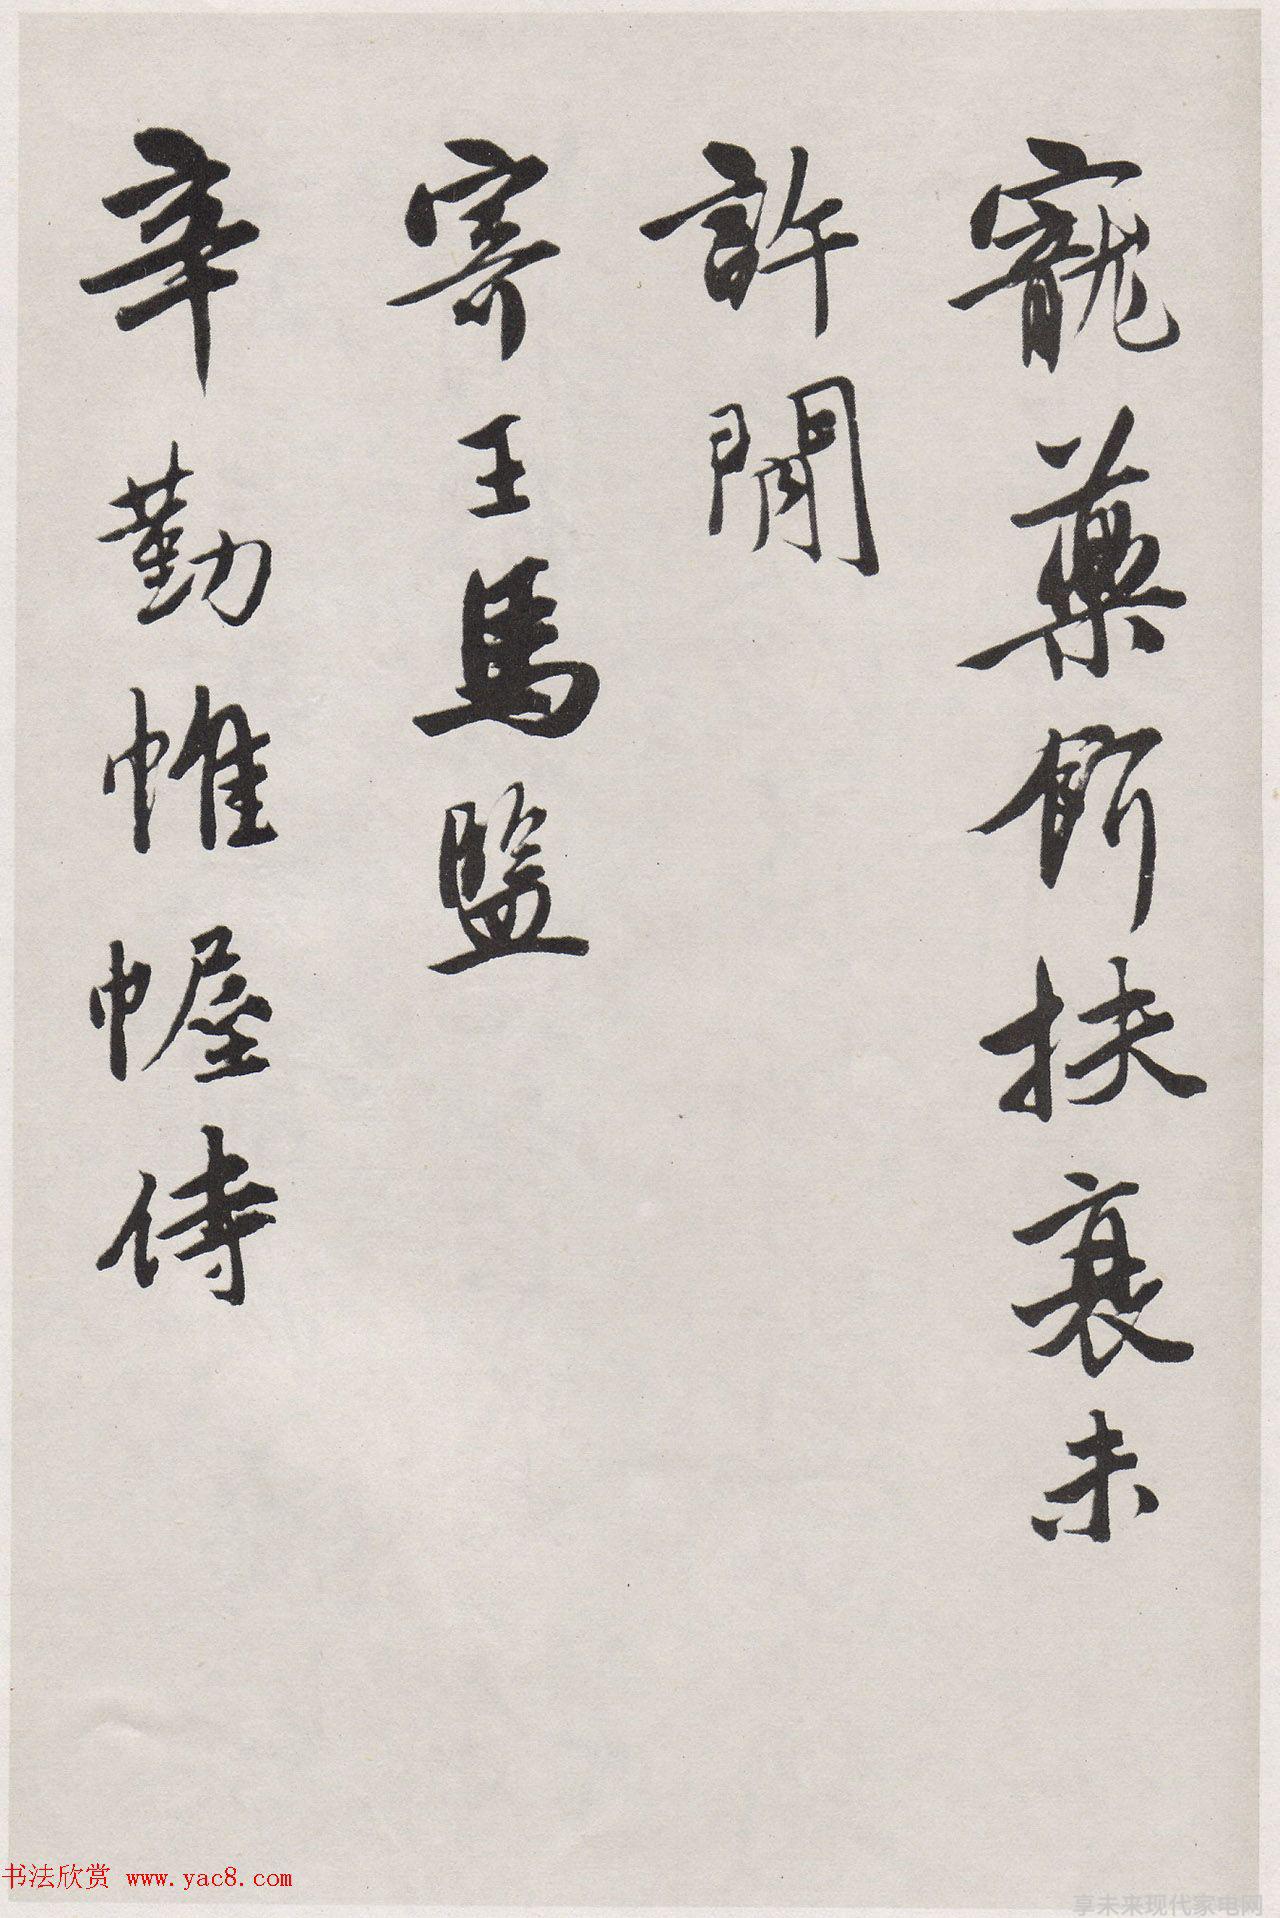 寵藥餌扶衰未
許閒
寄王馬監
辛勤帷幄侍
书法欣赏 www.yac8.com
享未来现代家电网